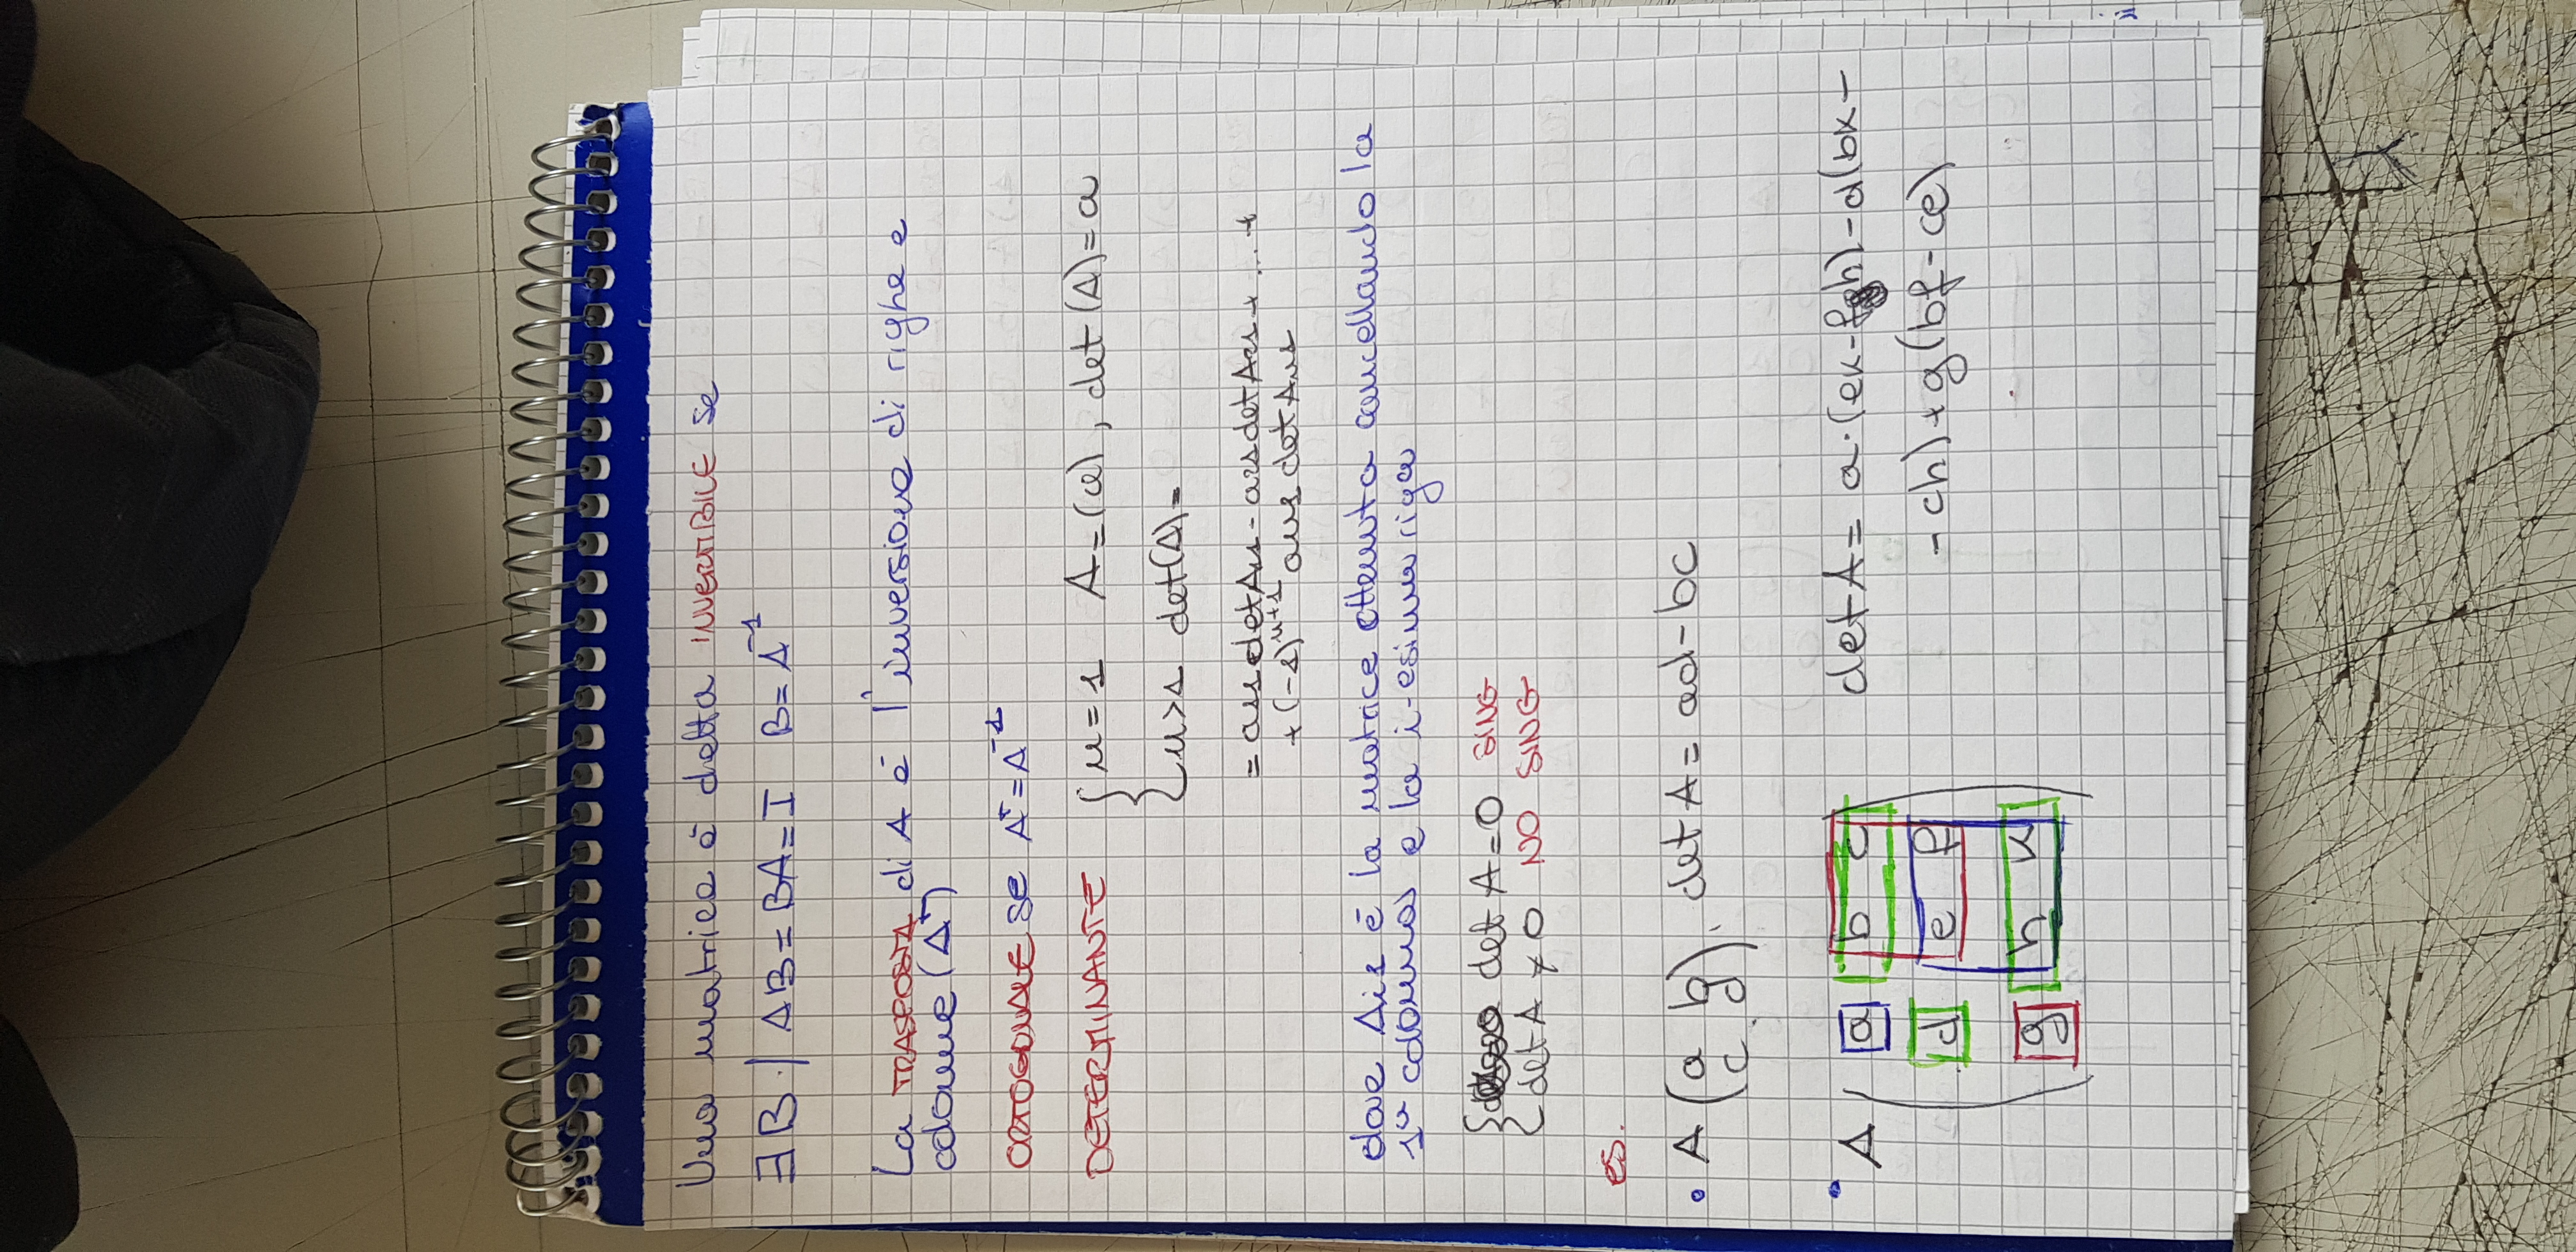 Una matrice è detta INVERTIBILE se
∃B | AB=BA=I B=A⁻¹
La TRASPOSTA di A è l'inversione di righe e
colonne (Aᵀ)
ORTOGONALE se Aᵀ=A⁻¹
DETERMINANTE { n=1 A=(a), det(A)=a
n>1 det(A)=
= a₁₁detA₁₁ - a₂₁detA₂₁ + ... +
+ (-1)ⁿ⁺¹ aₙ₁ detAₙ₁
dove Ai1 è la matrice ottenuta cancellando la
1ª colonna e la i-esima riga
{ det A=0 SING
det A ≠ 0 NO SING
es.
• A (a b
c d). det A = ad-bc
• A ( a b c
d e f
g h k )
det A = a·(ek-fh)-d(bk-
-ch)+g(bf-ce)